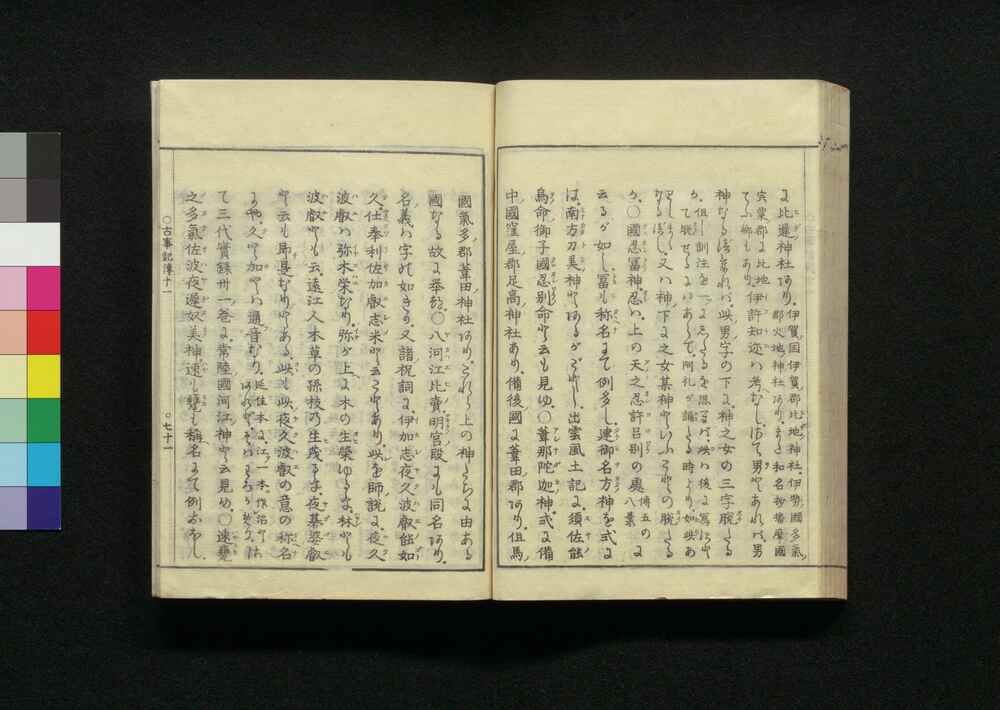 に比遲神社あり、伊賀國伊賀郡比地神社、伊勢國多氣
宍粟郡に比地
てふ郷もあり、伊許知迩は考なし、さて男とあれバ、男
郡火地神社あり、また和名抄播磨國
神なるべければ、此男字の下に神之女の三字脱たる
か、
なるべし、又ハ神下に之女某神といふことの脱たる
か、○國忍富神、忍ハ、上の天之忍許呂別の處 傳五の八葉 に
云るが如し、富も称名にて例多し、建御名方神を、式に
は、南方刀美神とあるがごとし、出雲風土記に、須佐能
烏命御子國忍別命と云も見ゆ、○葦那陀迦神、式に備
中國窪屋郡足高神社あり、備後國に葦田郡あり、但馬
國氣多郡葦田神社あり、これら上の神たちに由ある
國なる故に擧つ、○八河江比賣、明宮段にも同名あり、
名義ハ字の如きか、又諸祝詞に、伊加志夜久波叡能如
久、仕奉利佐加叡志米と云ことあり、此を師説に、夜久
波叡ハ弥木榮なり、弥が上に木の生榮ゆるよ、林とも
波叡とも云、遠江人木草の孫枝の生茂るを、夜幕婆叡
と云も即是なりとある、此も此夜久波叡の意の称名
にや、久と加とハ通音なり、延佳本に、江一本作沼とは
て三代實録卅一卷に、常陸國河江神と云見ゆ、○速甕
之多氣佐波夜遲奴美神、速も甕も稱名にて例おほし、
○古事記傳十一
○七十一